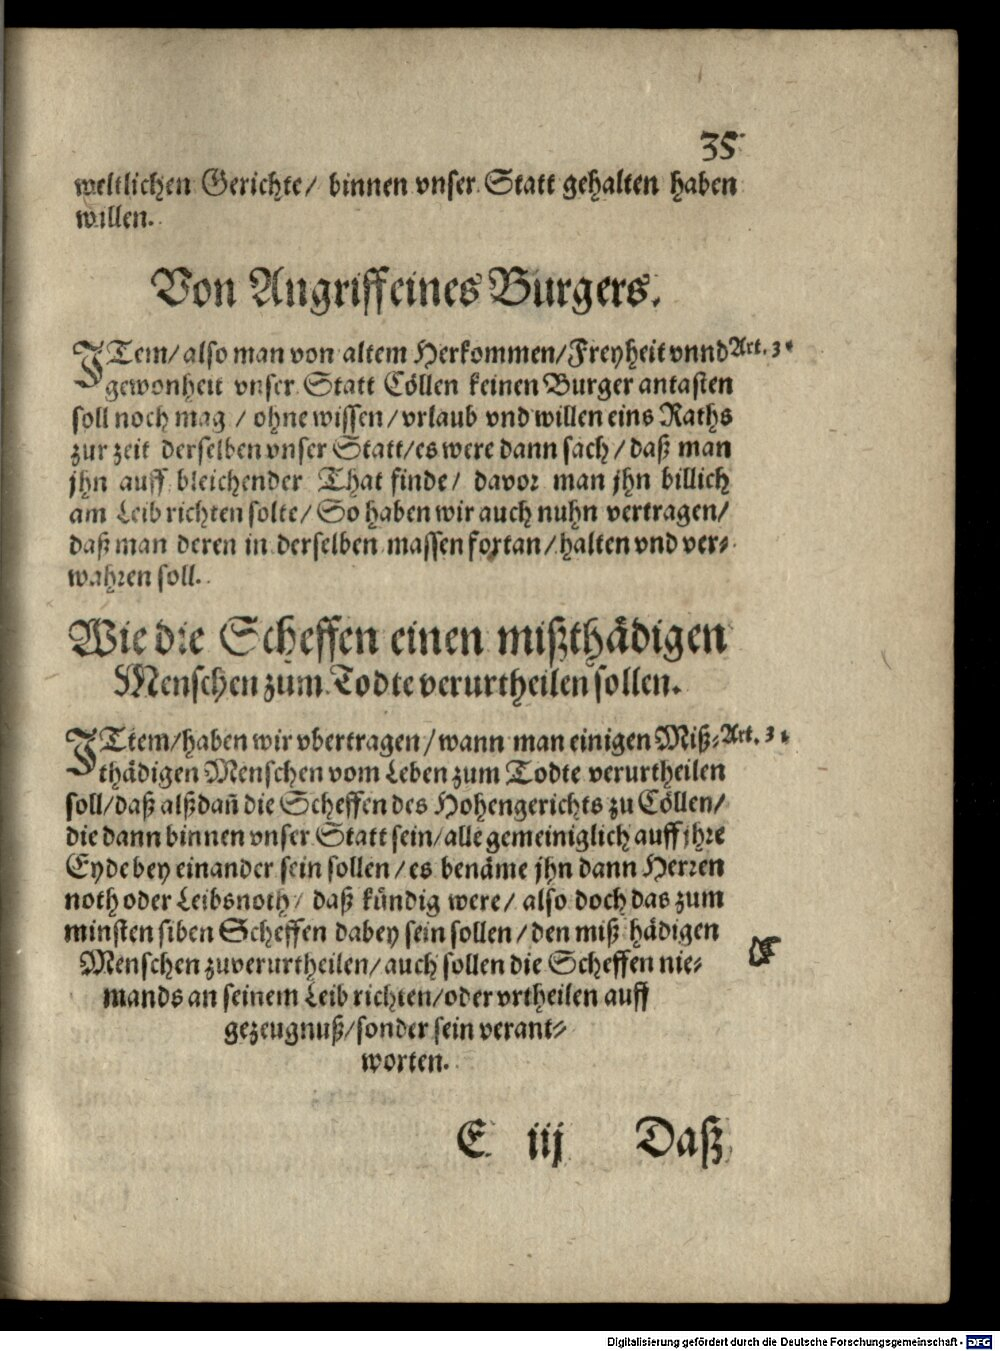 35
weltlichen Gerichte/ binnen vnser Statt gehalten haben
willen.
Von Angriff eines Burgers.
ITem/ also man von altem Herkommen/ Freyheit vnnd Art. 3
gewonheit vnser Statt Cöllen keinen Burger antasten
soll noch mag / ohne wissen/ vrlaub vnd willen eins Raths
zur zeit derselben vnser Statt/ es were dann sach/ daß man
jhn auff bleichender That finde/ davor man jhn billich
am Leib richten solte/ So haben wir auch nuhn vertragen/
daß man deren in derselben massen fortan/ halten vnd ver-
wahren soll.
Wie die Scheffen einen mißthädigen
Menschen zum Todte verurtheilen sollen.
ITtem/ haben wir vbertragen/ wann man einigen Miß- Art. 3
thädigen Menschen vom Leben zum Todte verurtheilen
soll/ daß alßdañ die Scheffen des Hohengerichts zu Cöllen/
die dann binnen vnser Statt sein/ alle gemeiniglich auff jhre
Eyde bey einander sein sollen/ es benäme jhn dann Herren
noth oder Leibsnoth/ daß kündig were/ also doch das zum
minsten siben Scheffen dabey sein sollen/ den miß hädigen
Menschen zuverurtheilen/ auch sollen die Scheffen nie-
mands an seinem Leib richten/ oder vrtheilen auff
gezeugnuß/ sonder sein verant-
worten.
E iij Daß
Digitalisierung gefördert durch die Deutsche Forschungsgemeinschaft - DFG